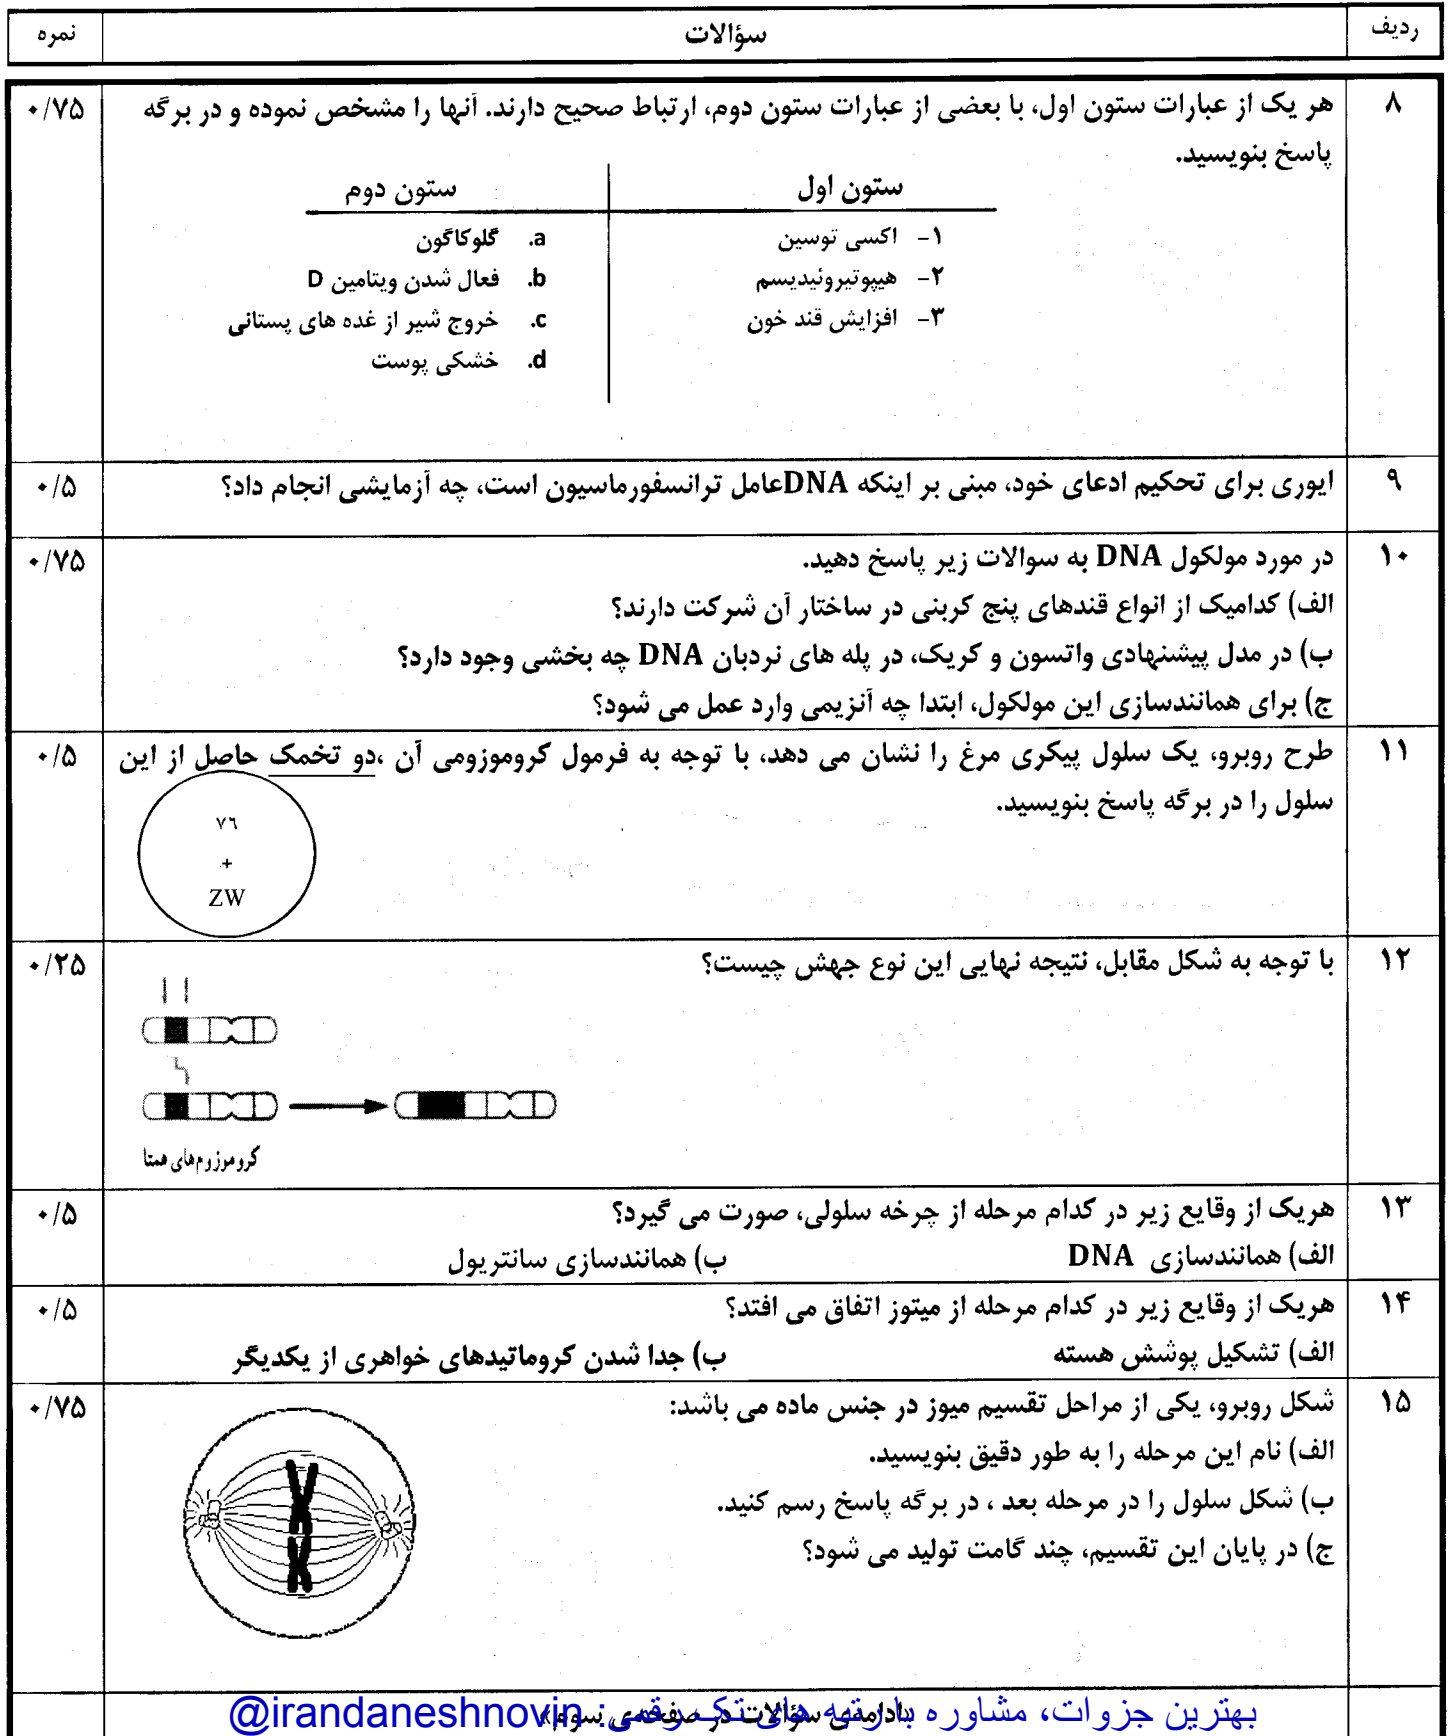 ردیف
سؤالات
نمره
۸
هر یک از عبارات ستون اول، با بعضی از عبارات ستون دوم، ارتباط صحیح دارند. آنها را مشخص نموده و در برگه
۰/۷۵
پاسخ بنویسید.
ستون اول
ستون دوم
۱- اکسی توسین
a. گلوکاگون
۲- هیپوتیروئیدیسم
b. فعال شدن ویتامین D
۳- افزایش قند خون
c. خروج شیر از غده های پستانی
d. خشکی پوست
۹
ایوری برای تحکیم ادعای خود، مبنی بر اینکه DNAعامل ترانسفورماسیون است، چه آزمایشی انجام داد؟
۰/۵
۱۰
در مورد مولکول DNA به سوالات زیر پاسخ دهید.
۰/۷۵
الف) کدامیک از انواع قندهای پنج کربنی در ساختار آن شرکت دارند؟
ب) در مدل پیشنهادی واتسون و کریک، در پله های نردبان DNA چه بخشی وجود دارد؟
ج) برای همانندسازی این مولکول، ابتدا چه آنزیمی وارد عمل می شود؟
۱۱
طرح روبرو، یک سلول پیکری مرغ را نشان می دهد، با توجه به فرمول کروموزومی آن ،دو تخمک حاصل از این
۰/۵
سلول را در برگه پاسخ بنویسید.
۷٦
+
ZW
۱۲
با توجه به شکل مقابل، نتیجه نهایی این نوع جهش چیست؟
۰/۲۵
کروموزوم‌های همتا
۱۳
هریک از وقایع زیر در کدام مرحله از چرخه سلولی، صورت می گیرد؟
۰/۵
الف) همانندسازی DNA
ب) همانندسازی سانتریول
۱۴
هریک از وقایع زیر در کدام مرحله از میتوز اتفاق می افتد؟
۰/۵
الف) تشکیل پوشش هسته
ب) جدا شدن کروماتیدهای خواهری از یکدیگر
۱۵
شکل روبرو، یکی از مراحل تقسیم میوز در جنس ماده می باشد:
۰/۷۵
الف) نام این مرحله را به طور دقیق بنویسید.
ب) شکل سلول را در مرحله بعد ، در برگه پاسخ رسم کنید.
ج) در پایان این تقسیم، چند گامت تولید می شود؟
«ادامه‌ی سؤالات در صفحه‌ی سوم»
بهترین جزوات، مشاوره با رتبه های تک رقمی: @irandaneshnovin